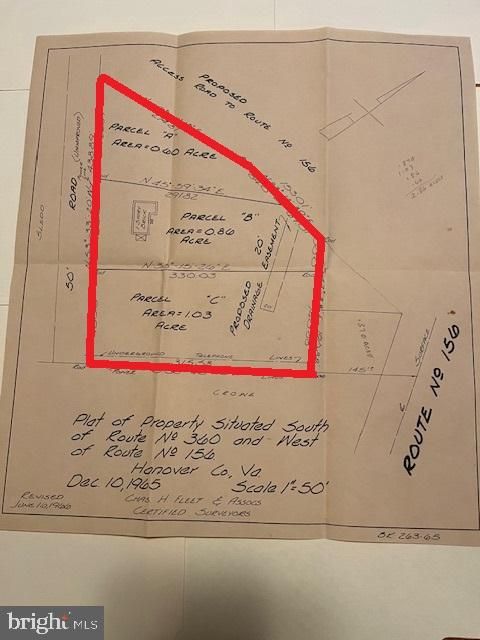 PROPOSED
ACCESS ROAD TO ROUTE Nº 156
PARCEL "A"
AREA=0.60 ACRE
ROAD (UNIMPROVED)
50'
SLEDD
N-45°-59'-34"E
291.82
1 STORY
BRICK
PARCEL "B"
AREA=0.86
ACRE
20'
PROPOSED
DRAINAGE EASEMENT
20'
330.03
PARCEL "C"
AREA=1.03
ACRE
UNDERGROUND TELEPHONE LINES
POWER LINES
Rod
CROWE
145'
SURFACE
ROUTE Nº 156
Plat of Property Situated South
of Route Nº 360 and West
of Route Nº 156
Hanover Co, Va.
Dec 10, 1965 Scale 1"=50'
CHAS H FLEET & ASSOCS
CERTIFIED SURVEYORS
REVISED
JUNE 10, 1966
BK 263-65
bright MLS